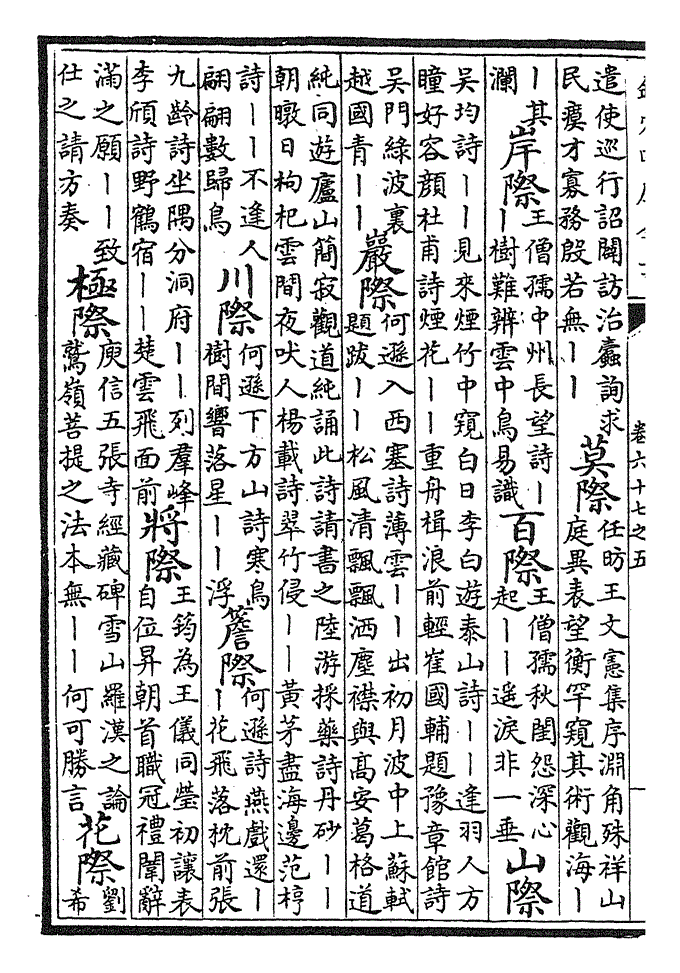 卷六十七之五
遣使巡行詔闢訪治蠹詢求
民瘼才寡務殷若無｜｜
莫際
任昉王文憲集序淵角殊祥山
庭異表望衡罕窺其術觀海｜
｜其
瀾
岸際
王僧孺中州長望詩｜
｜樹難辨雲中鳥易識
百際
王僧孺秋閨怨深心
起｜｜遥淚非一垂
山際
吳均詩｜｜見來煙竹中窺白日李白遊泰山詩｜｜逢羽人方
瞳好容顔杜甫詩煙花｜｜重舟楫浪前輕崔國輔題豫章館詩
吳門綠波裏
越國青｜｜
巖際
何遜入西塞詩薄雲｜｜出初月波中上蘇軾
題跋｜｜松風清飄飄洒塵襟與高安葛格道
純同遊廬山簡寂觀道純誦此詩請書之陸游採藥詩丹砂｜｜
朝暾日枸杞雲間夜吠人楊載詩翠竹侵｜｜黄茅盡海邊范梈
詩｜｜不逢人
翩翩數歸鳥
川際
何遜下方山詩寒鳥
樹間響落星｜｜浮
簷際
何遜詩燕戲還｜
｜花飛落枕前張
九齡詩坐隅分洞府｜｜列羣峰
李頎詩野鶴宿｜｜楚雲飛面前
將際
王筠為王儀同瑩初讓表
自位昇朝首職冠禮闈辭
滿之願｜｜致
仕之請方奏
極際
庾信五張寺經藏碑雪山羅漢之論
鷲嶺菩提之法本無｜｜何可勝言
花際
劉
希